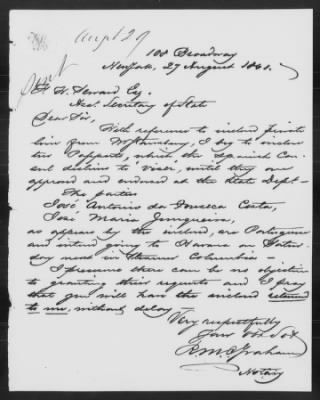 Augt 29
108 Broadway
New York, 27 August 1861.
F. W. Seward Esq.
Asst. Secretary of State
Dear Sir,
With reference to inclosed
from Wmsburg, I beg to inclose
two Passports, which the Spanish Con-
sul declines to visée, until they are
approved and endorsed at the State Dept—
The parties
José Antonio da Fonseca Costa,
José Maria Junqueira,
as appears by the inclosed, are Portuguese
and intend going to Havana on Satur-
day next in Steamer Columbia—
I presume there can be no objection
to granting their requests and I pray
that you will have the inclosed returned
to me, without delay
Very respectfully
Your obt Svt
R. McGraham
Notary